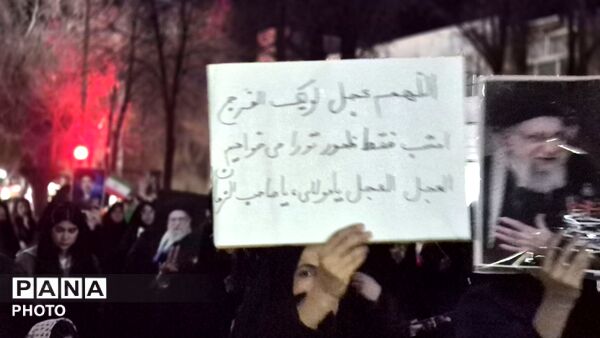 اللهم عجل لولیک الفرج
امشب فقط ظهور تو را می خواهیم
العجل العجل یا مولای، یا صاحب الزمان
PANA
PHOTO